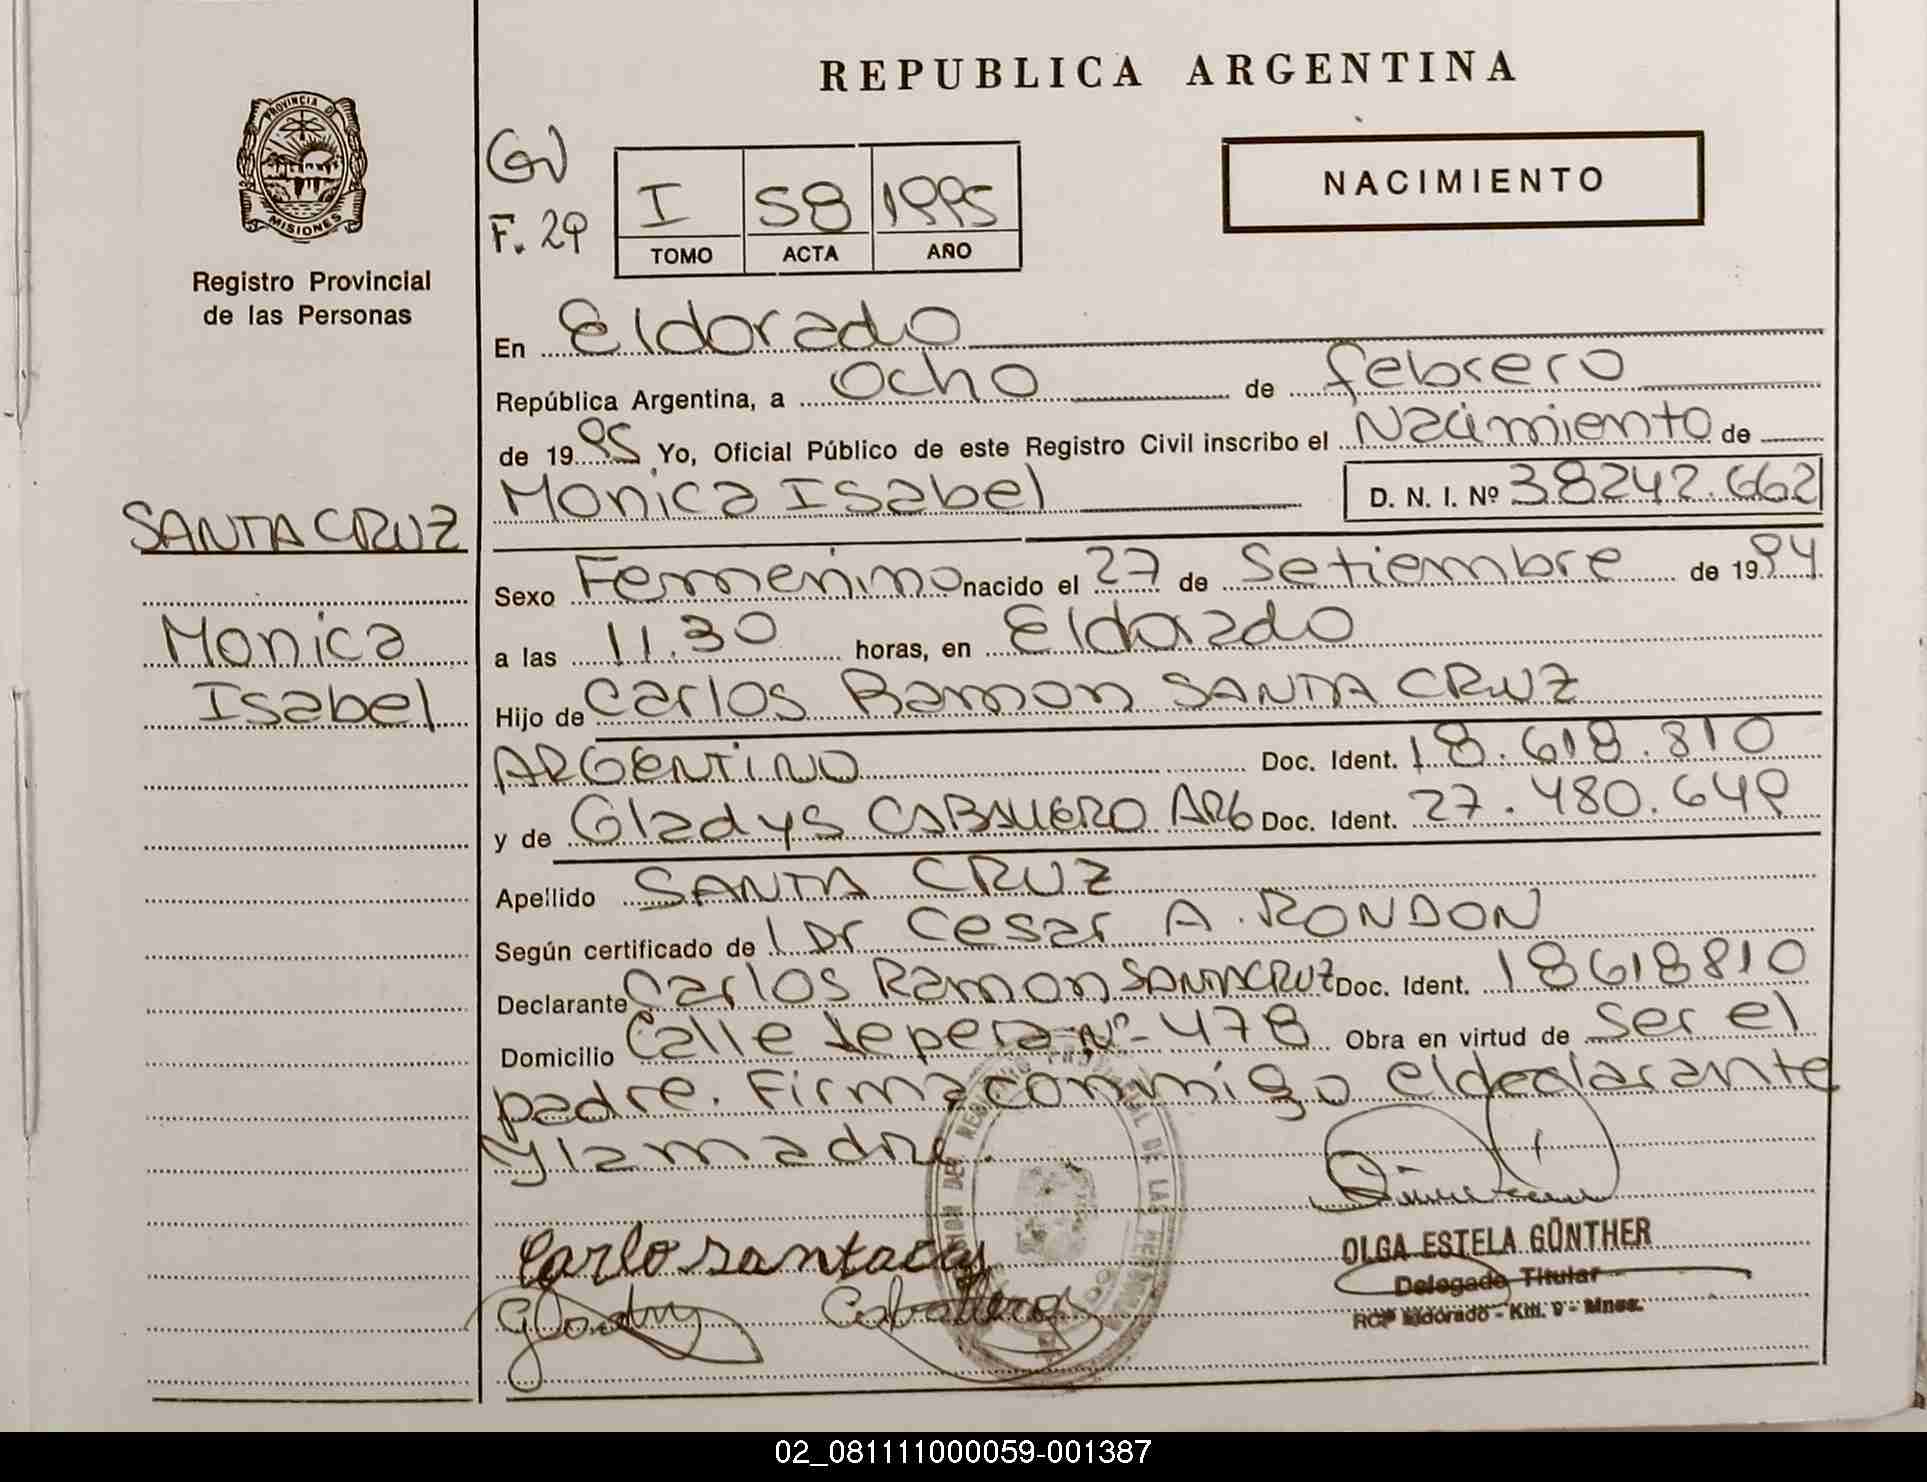 REPUBLICA ARGENTINA
PROVINCIA D
MISIONES
Registro Provincial
de las Personas
F. 29
I 58 1995
TOMO ACTA AÑO
NACIMIENTO
En Eldorado
República Argentina, a Ocho de febrero
de 1995 Yo, Oficial Público de este Registro Civil inscribo el Nacimiento de
Monica Isabel D. N. I. Nº 38242.662
SANTA CRUZ
Monica
Isabel
Sexo Femenino nacido el 27 de Setiembre de 1994
a las 11.30 horas, en Eldorado
Hijo de Carlos Ramon SANTA CRUZ
ARGENTINO Doc. Ident. 18.618.810
y de Gladys CABALLERO ARG Doc. Ident. 27.480.649
Apellido SANTA CRUZ
Según certificado de Dr Cesar A. RONDON
Declarante Carlos Ramon SANTA CRUZ Doc. Ident. 18618810
Domicilio Calle Nº 478 Obra en virtud de Ser el
padre. Firma conmigo el declarante
y la madre.
OLGA ESTELA GÜNTHER
Delegado Titular
RCP Eldorado - Km. 9 - Mnes.
Carlo santacrus
Glady Caballero
02_081111000059-001387